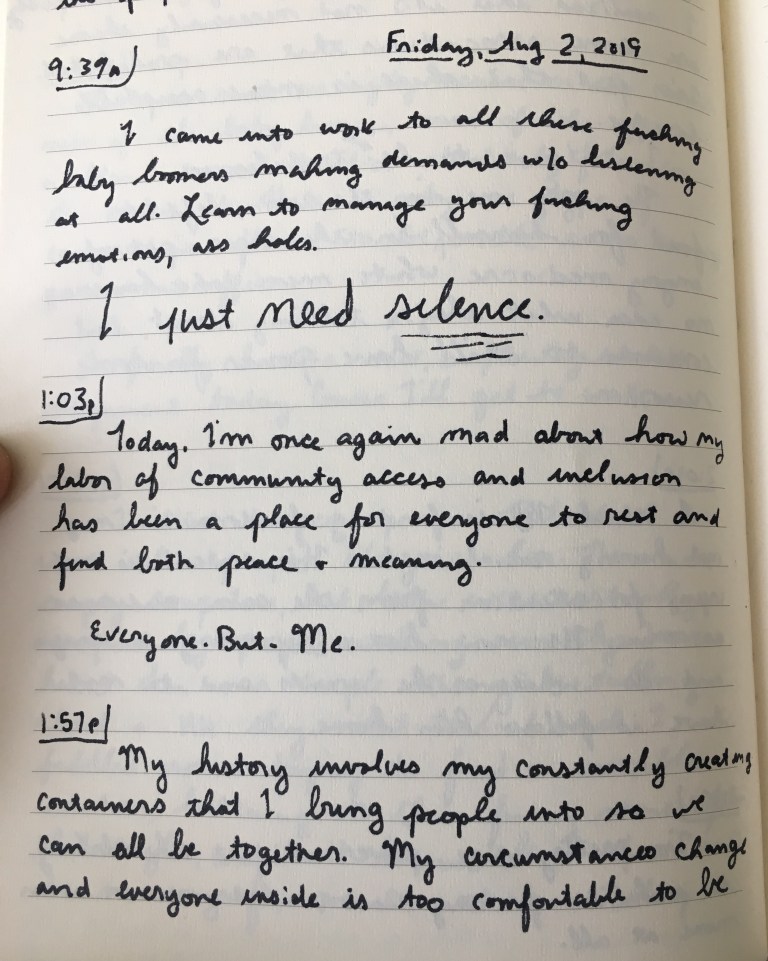 Friday, Aug 2, 2019
9:39a
I came into work to all these fucking
baby boomers making demands w/o listening
at all. Learn to manage your fucking
emotions, ass holes.
I just need silence.
1:03p
Today, I'm once again mad about how my
labor of community access and inclusion
has been a place for everyone to rest and
find both peace + meaning.
Everyone. But. Me.
1:57p
My history involves my constantly creating
containers that I bring people into so we
can all be together. My circumstances change
and everyone inside is too comfortable to be